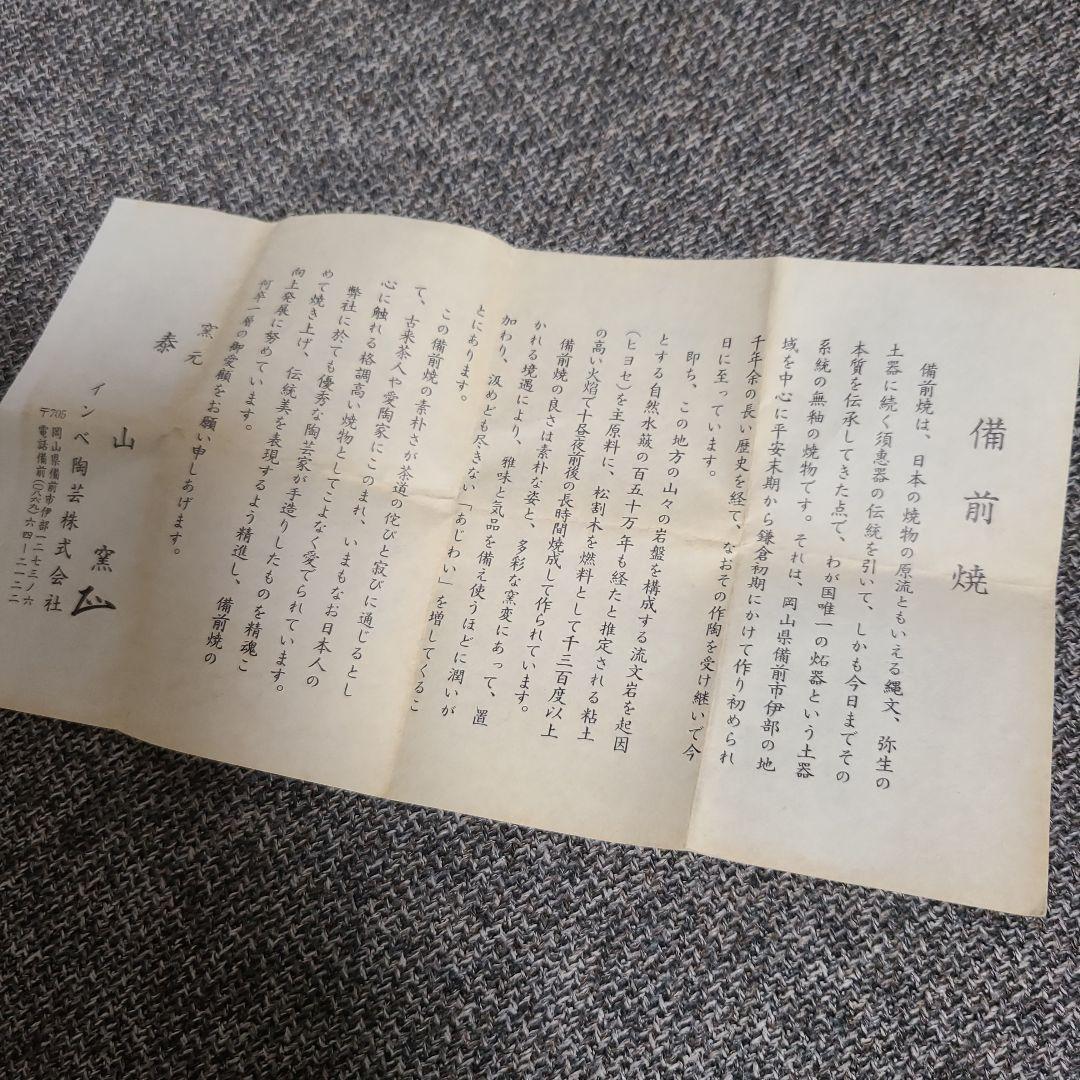 備前焼
備前焼は、日本の焼物の原流ともいえる縄文、弥生の
土器に続く須恵器の伝統を引いて、しかも今日までその
本質を伝承してきた点で、わが国唯一の炻器という土器
系統の無釉の焼物です。それは、岡山県備前市伊部の地
域を中心に平安末期から鎌倉初期にかけて作り初められ
千年余の長い歴史を経て、なおその作陶を受け継いで今
日に至っています。
即ち、この地方の山々の岩盤を構成する流文岩を起因
とする自然水蔌の百五十万年も経たと推定される粘土
(ヒヨセ)を主原料に、松割木を燃料として千三百度以上
の高い火焰で十昼夜前後の長時間焼成して作られています。
備前焼の良さは素朴な姿と、多彩な窯変にあって、置
かれる境遇により、雅味と気品を備え使うほどに潤いが
加わり、汲めども尽きない「あじわい」を増してくるこ
とにあります。
この備前焼の素朴さが茶道の侘びと寂びに通じるとし
て、古来茶人や愛陶家にこのまれ、いまもなお日本人の
心に触れる格調高い焼物としてこよなく愛でられています。
弊社に於ても優秀な陶芸家が手造りしたものを精魂こ
めて焼き上げ、伝統美を表現するよう精進し、備前焼の
向上発展に努めています。
何卒一層の御愛顧をお願い申しあげます。
窯元
泰山窯
インベ陶芸株式会社
〒705 岡山県備前市伊部一二七三ノ六
電話備前(〇八六九)六四ー二一二二